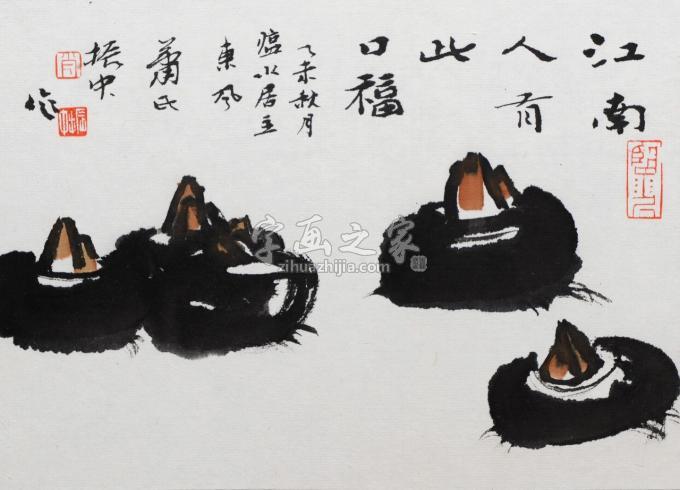 江南
人有
此
口福
乙未秋月
临水居主
東风
萧氏
振中
作
字画之家
zihuazhijia.com